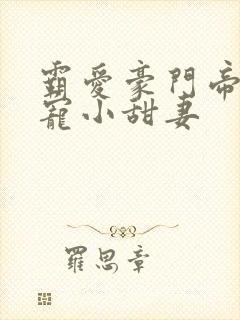 霸愛豪門帝
寵小甜妻
羅思章